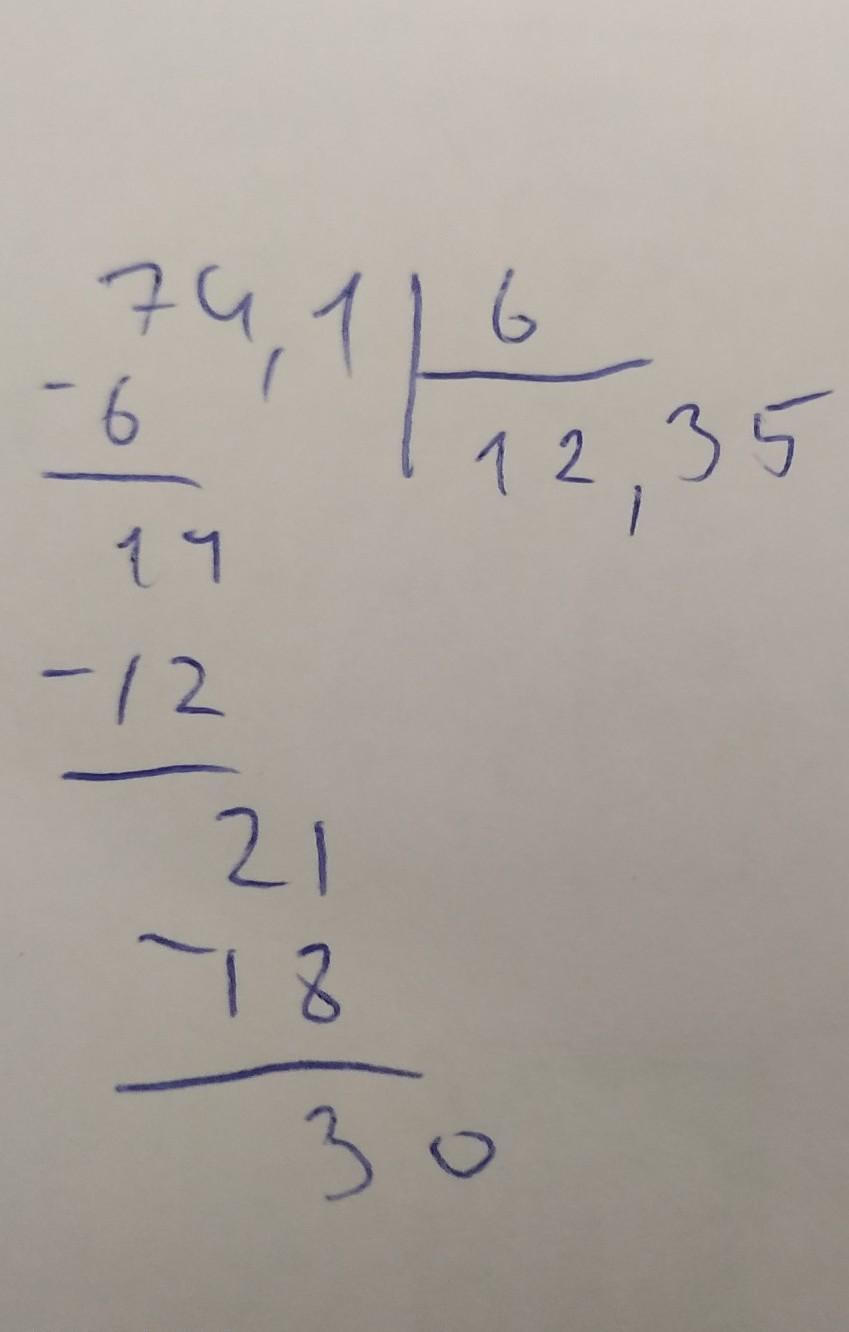 74,1 6
-6 12,35
14
-12
21
-18
30